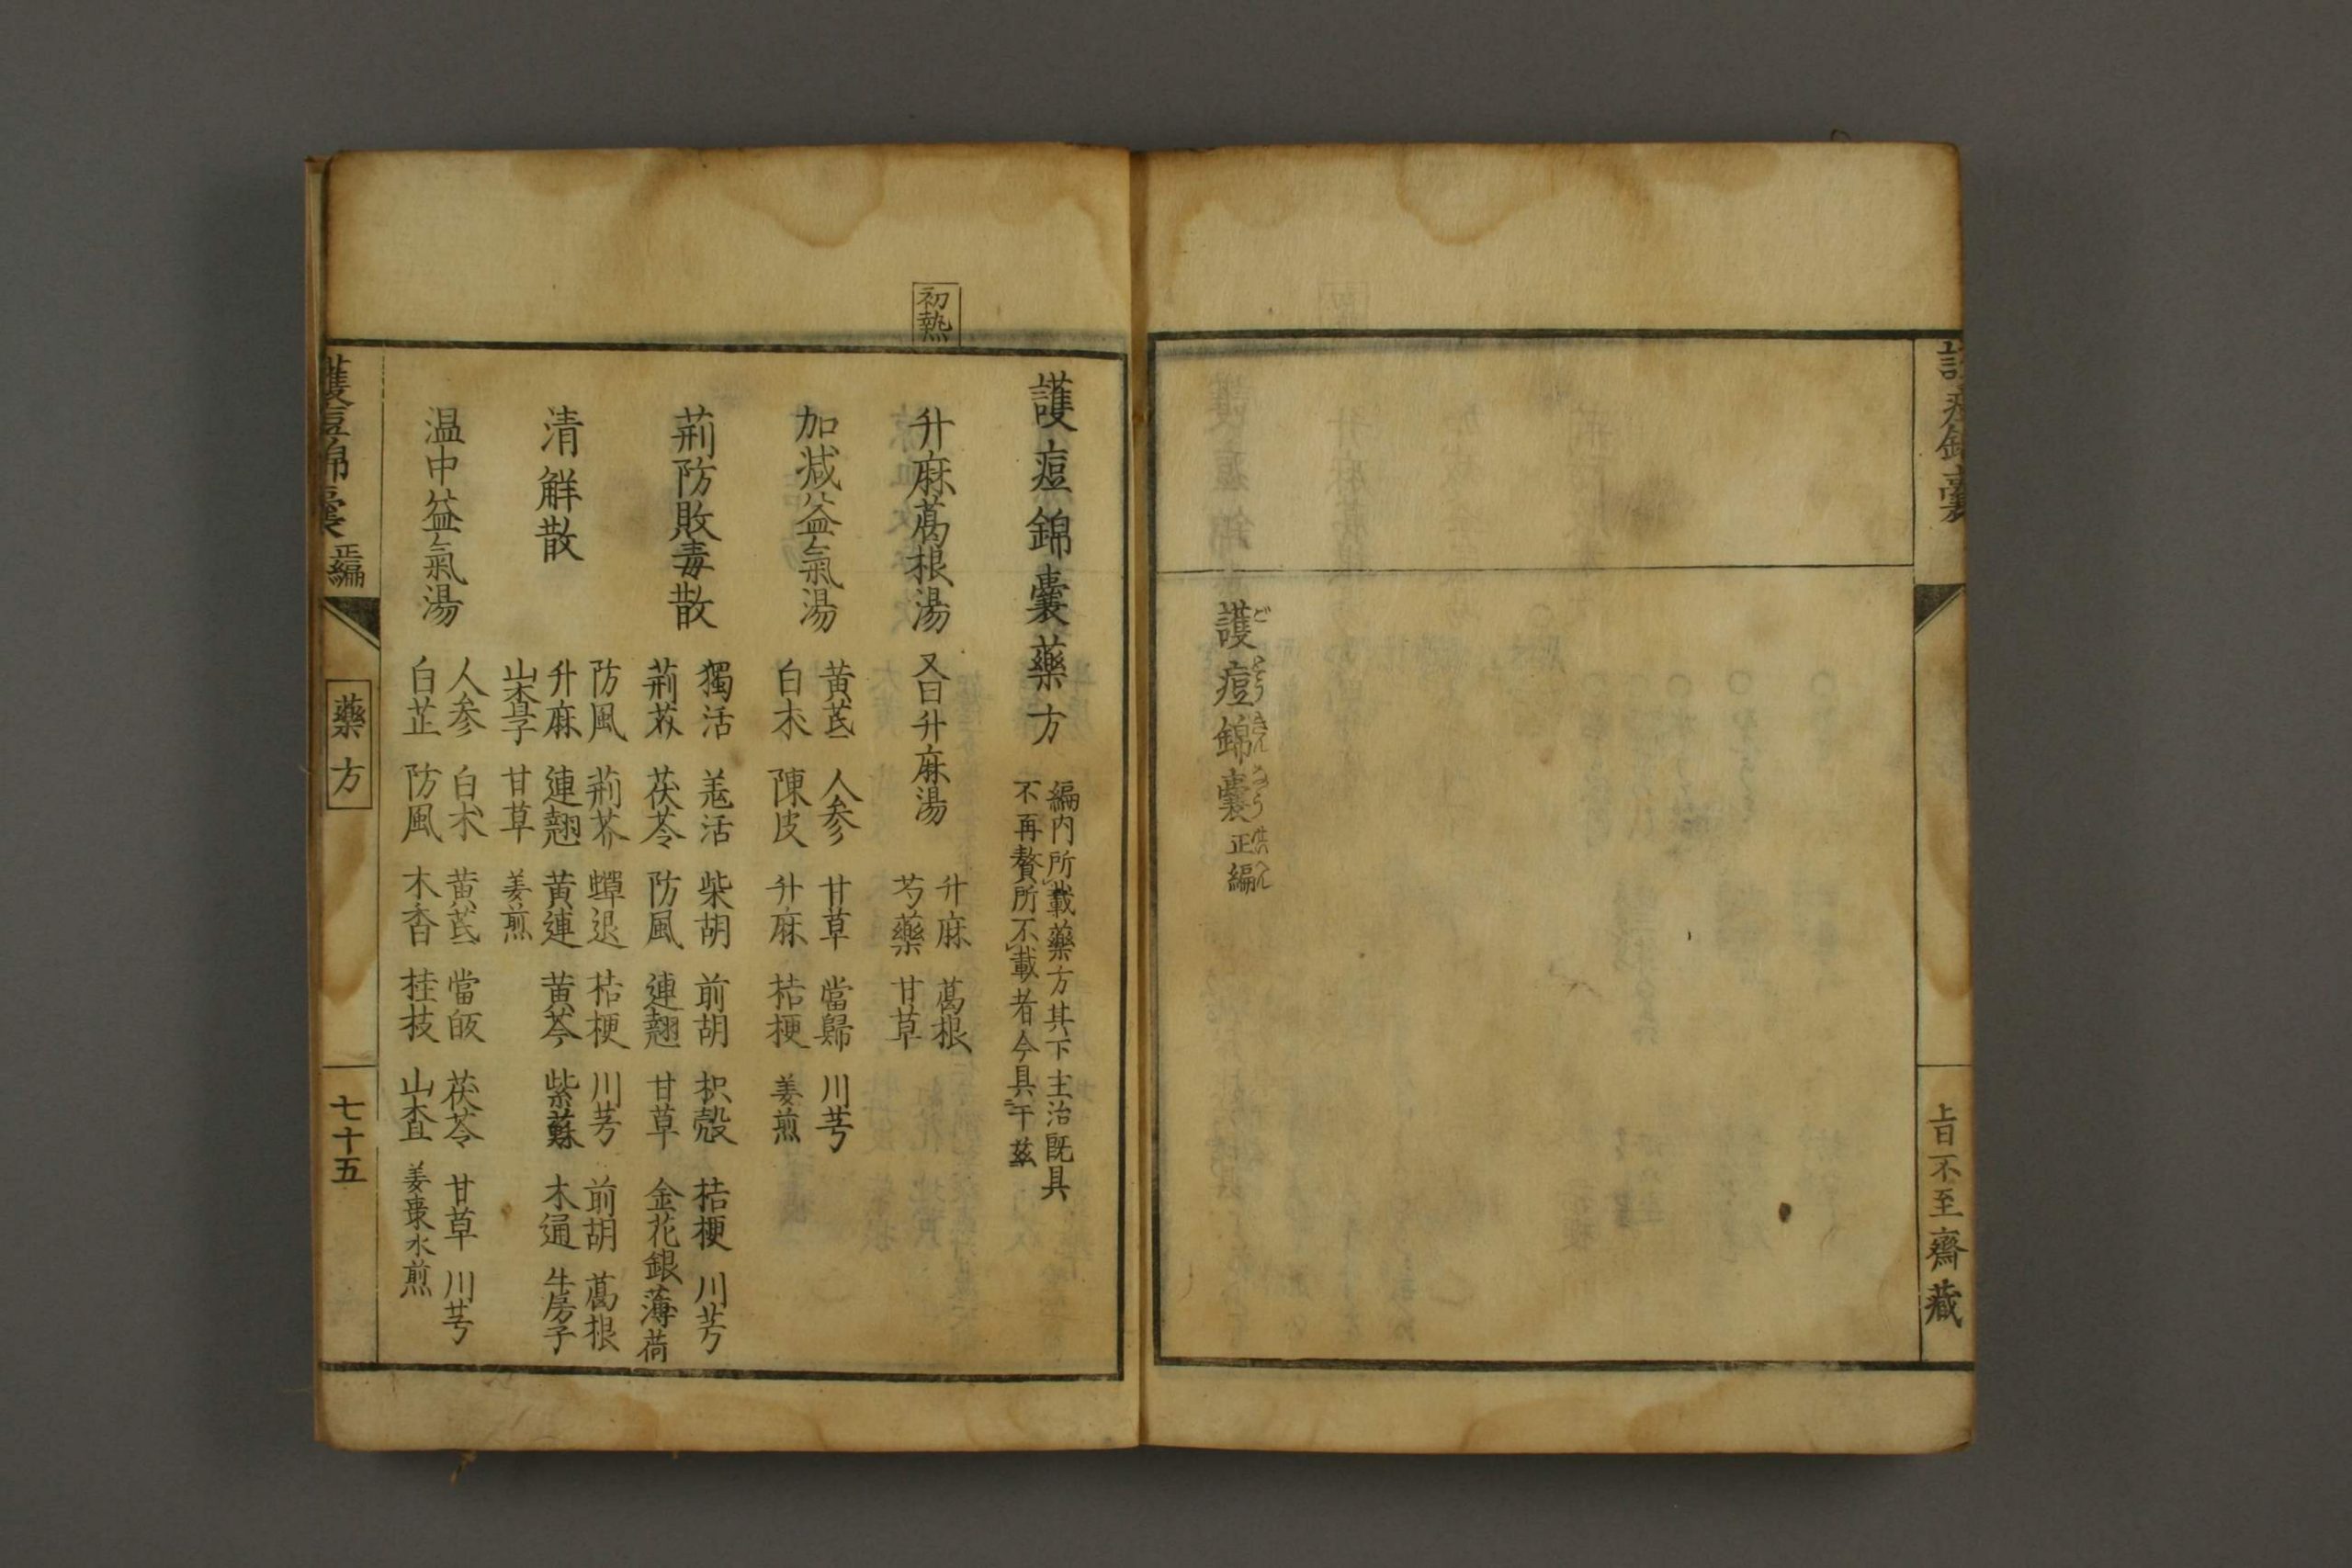 護痘錦嚢
護痘錦嚢正編
ごとうきんのうせいへん
上日不至齋藏
初熱
護痘錦嚢藥方
編内所載藥方其下主治既具
不再贅所不載者今具于茲
升麻葛根湯 又曰升麻湯
升麻 葛根
芍藥 甘草
加减益氣湯
黄芪 人参 甘草 當歸 川芎
白朮 陳皮 升麻 桔梗 姜煎
荊防敗毒散
獨活 羗活 柴胡 前胡 枳殼 桔梗 川芎
荊芥 茯苓 防風 連翹 甘草 金花銀 薄荷
清解散
防風 荊芥 蟬退 桔梗 川芎 前胡 葛根
升麻 連翹 黄連 黄芩 紫蘇 木通 牛房子
山査子 甘草 姜煎
温中益氣湯
人参 白朮 黄芪 當皈 茯苓 甘草 川芎
白芷 防風 木香 桂枝 山査 姜棗水煎
護痘錦嚢 正編
藥方
七十五